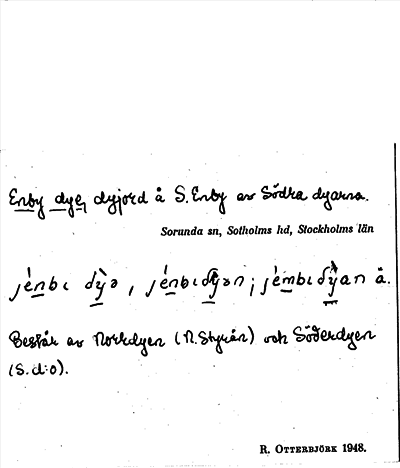 Enby dyen dyjord å S. Enby av Södra dyarna.
Sorunda sn, Sotholms hd, Stockholms län
Består av Norrdyen (N. Styrån) och Söderdyen
(S. d:o).
R. OTTERBJÖRK 1948.